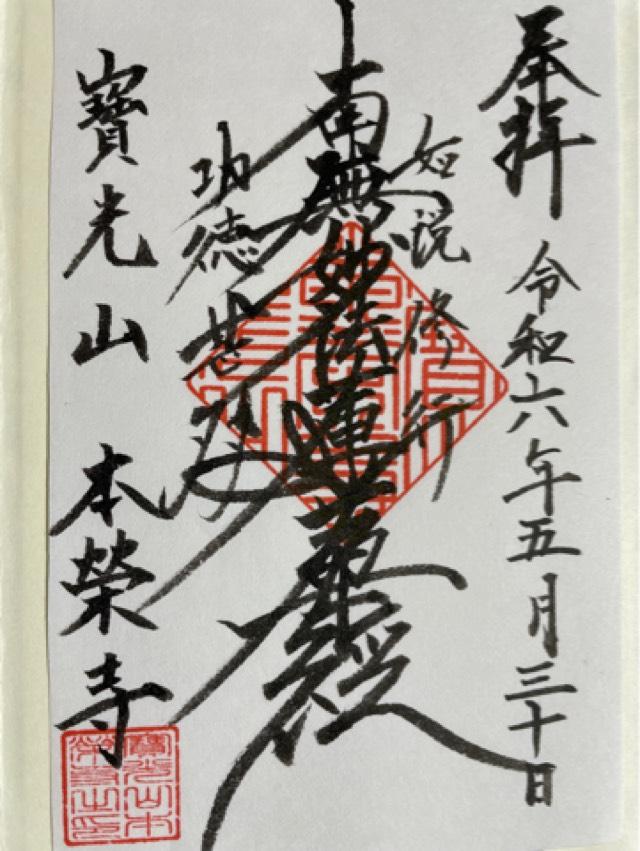 奉拝
令和六年五月三十日
如説修行
南無妙法蓮華経
功徳甚多
寶光山 本榮寺